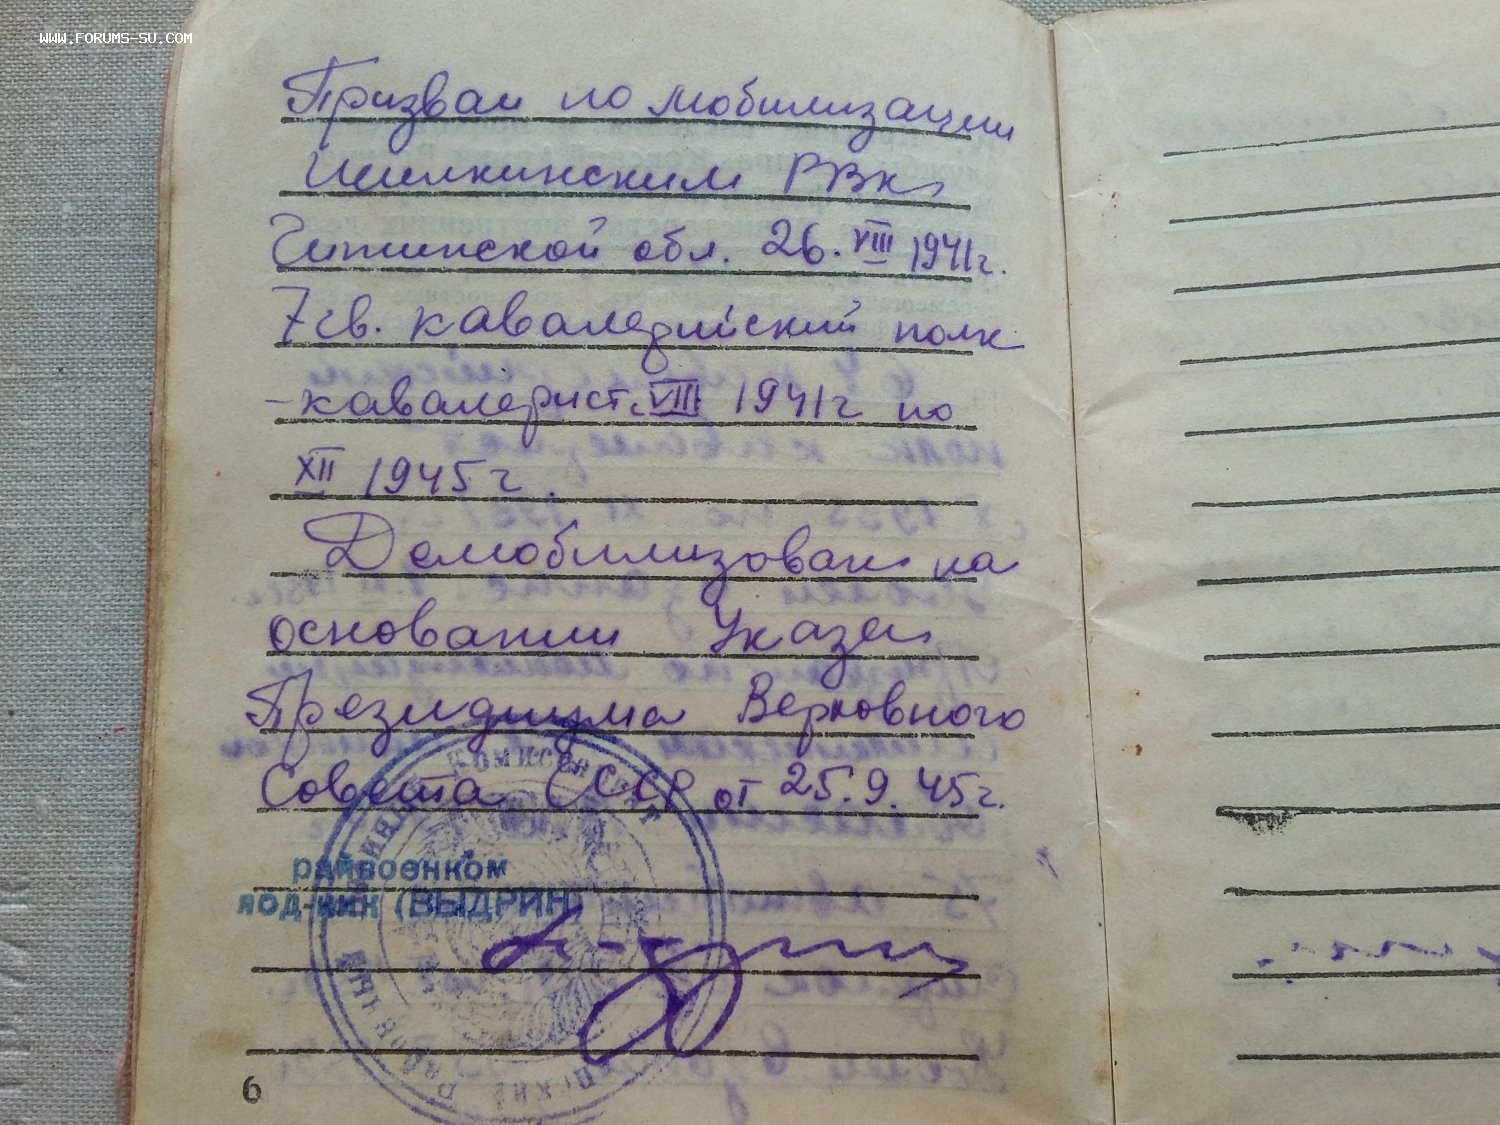 WWW.FORUMS-SU.COM
Призван по мобилизации
Шилкинским РВК
Читинской обл. 26. VIII 1941г.
7 св. кавалерийский полк
-кавалерист. VIII 1941г по
XII 1945г.
Демобилизован на
основании Указа
Президиума Верховного
Совета СССР от 25.9.45г.
райвоенком
под-ник (ВЫДРИН)
6